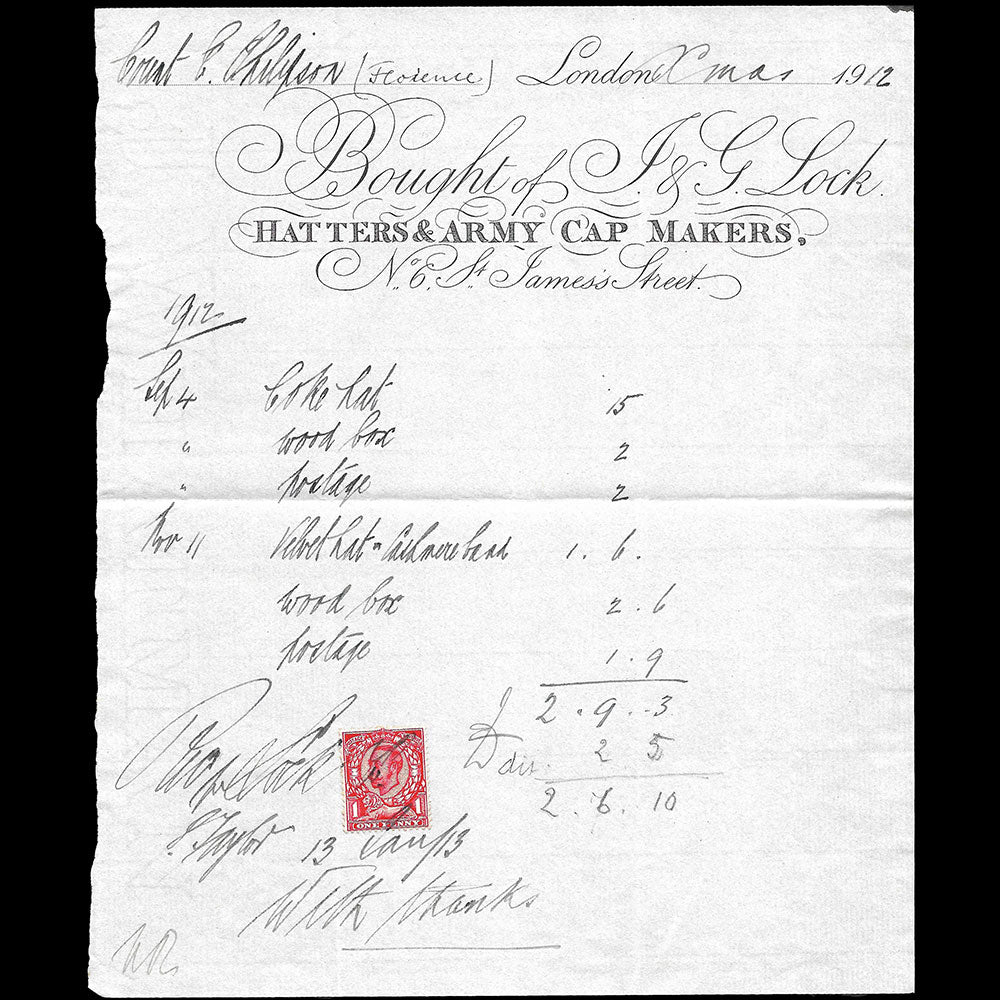 Count E. Philipson (Florence) London Xmas 1912
Bought of J. & G. Lock.
HATTERS & ARMY CAP MAKERS,
No. 6. St. James's Street.
1912
Sep 4 Coke hat 15
" wood box 2
" postage 2
Nov 11 Velvet hat " Cashmere band 1. 6.
wood box 2. 6
postage 1. 9
£ 2. 9. 3
dis. 2 5
2. 6. 10
Lock
1 1
ONE PENNY
Taylor 13 Jan/13
With thanks